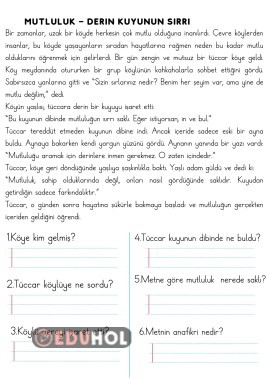 MUTLULUK – DERİN KUYUNUN SIRRI
Bir zamanlar, uzak bir köyde herkesin çok mutlu olduğuna inanılırdı. Çevre köylerden
insanlar, bu köyde yaşayanların sıradan hayatlarına rağmen neden bu kadar mutlu
olduklarını öğrenmek için gelirlerdi. Bir gün zengin ve mutsuz bir tüccar köye geldi.
Köy meydanında otururken bir grup köylünün kahkahalarla sohbet ettiğini gördü.
Sabırsızca yanlarına gitti ve "Sizin sırlarınız nedir? Benim her şeyim var, ama yine de
mutlu değilim," dedi.
Köyün yaşlısı, tüccara derin bir kuyuyu işaret etti:
"Bu kuyunun dibinde mutluluğun sırrı saklı. Eğer istiyorsan, in ve bul."
Tüccar tereddüt etmeden kuyunun dibine indi. Ancak içeride sadece eski bir ayna
buldu. Aynaya bakarken kendi yorgun yüzünü gördü. Aynanın yanında bir yazı vardı:
"Mutluluğu aramak için derinlere inmen gerekmez. O zaten içindedir."
Tüccar, köye geri döndüğünde yaşlıya şaşkınlıkla baktı. Yaşlı adam güldü ve dedi ki:
"Mutluluk, sahip olduklarında değil, onları nasıl gördüğünde saklıdır. Kuyudan
getirdiğin sadece farkındalıktır."
Tüccar, o günden sonra hayatına şükürle bakmaya başladı ve mutluluğun gerçekten
içeriden geldiğini öğrendi.
1.Köye kim gelmiş?
4.Tüccar kuyunun dibinde ne buldu?
2.Tüccar köylüye ne sordu?
5.Metne göre mutluluk nerede saklı?
3.Köylü nereyi işaret etti?
6.Metnin anafikri nedir?
EDUHOL